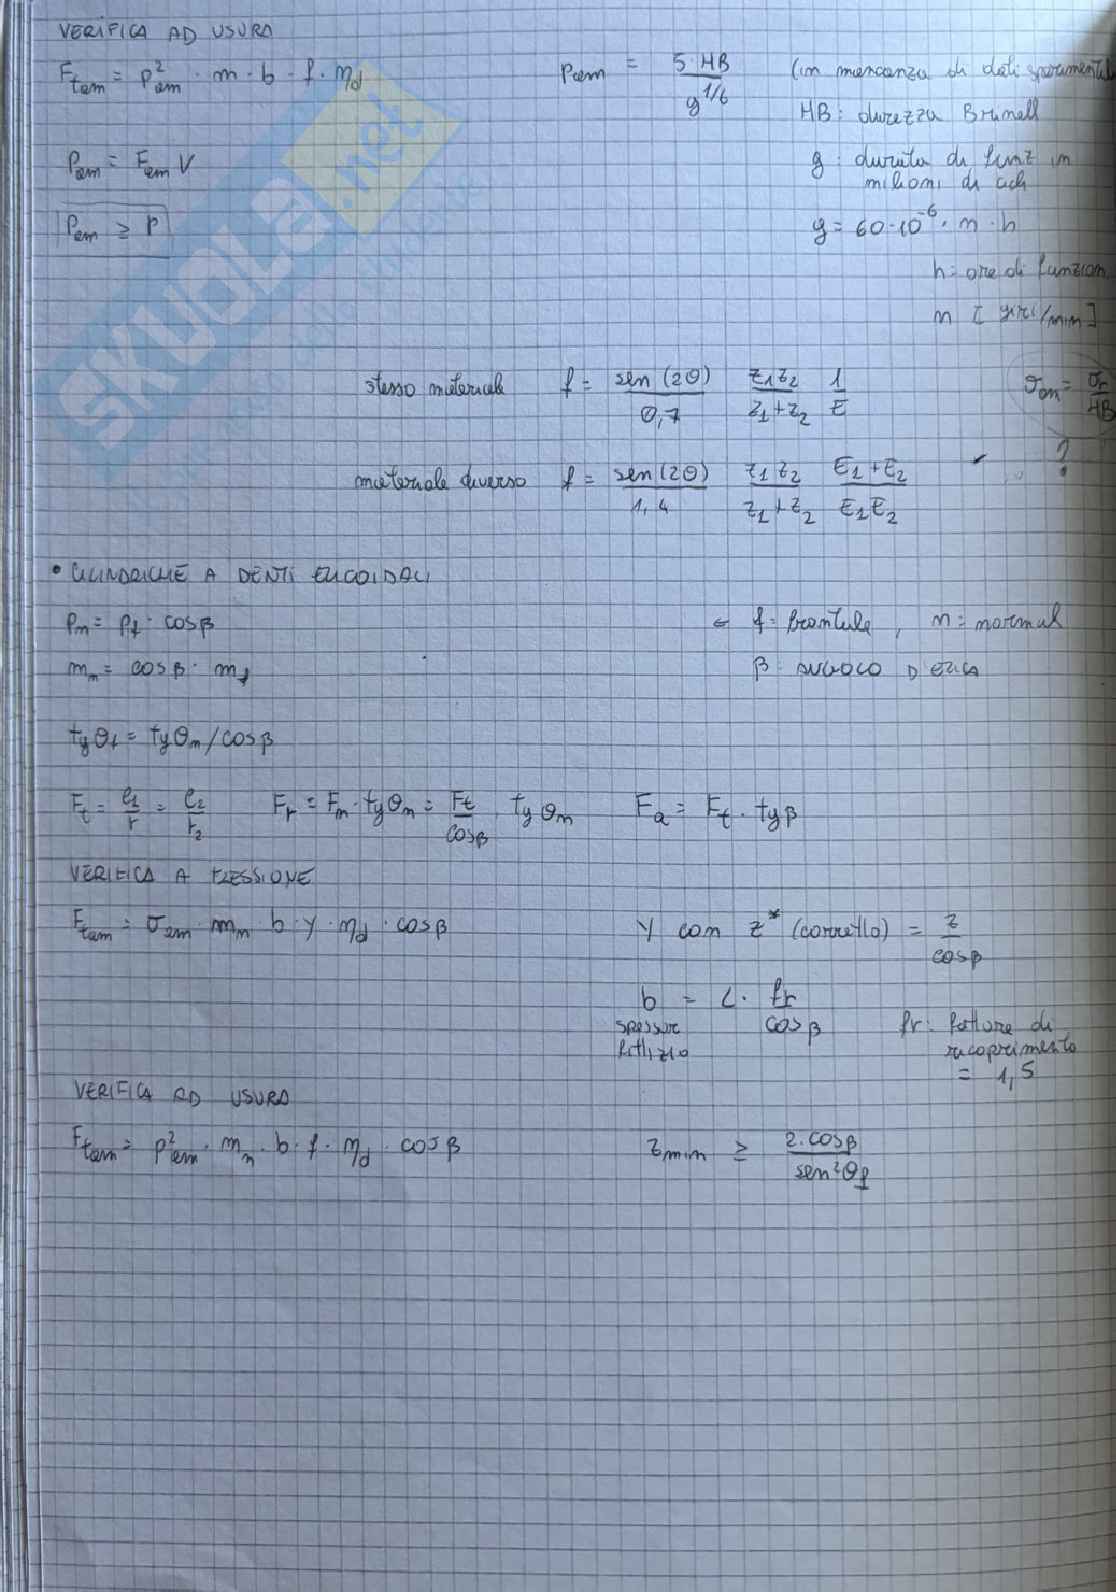 VERIFICA AD USURA
F_tam = p²_am · m · b · f · η_d    p_am = 5·HB / g^1/6    (in mancanza di dati sperimentali
HB: durezza Brinell
P_am = F_am V    g: durata di funz in
milioni di cicli
P_am ≥ P    g = 60·10⁻⁶ · n · h
h = ore di funzion.
n [giri/min]
stesso materiale    f = sen(2θ) / 0,7    z₁z₂ / z₁+z₂    1 / E    σ_am = σ_r / HB
?
materiale diverso    f = sen(2θ) / 1,4    z₁z₂ / z₁+z₂    E₁+E₂ / E₁E₂
• CILINDRICHE A DENTI ELICOIDALI
p_n = p_f · cosβ    f = frontale, n = normal
m_n = cosβ · m_f    β: ANGOLO D ELICA
tgθ_f = tgθ_n / cosβ
F_t = C₁ / r = C₂ / r₂    F_r = F_n · tgθ_n = F_t / cosβ · tgθ_n    F_a = F_t · tgβ
VERIFICA A FLESSIONE
F_tam = σ_am · m_n · b · y · η_d · cosβ    y con z* (corretto) = z / cosβ
b = L · fr / cosβ
spessore
fittizio
fr: fattore di
ricoprimento
= 1,5
VERIFICA AD USURA
F_tam = p²_am · m_n · b · f · η_d · cosβ    z_min ≥ 2·cosβ / sen²θ_f
SKUOLA.net